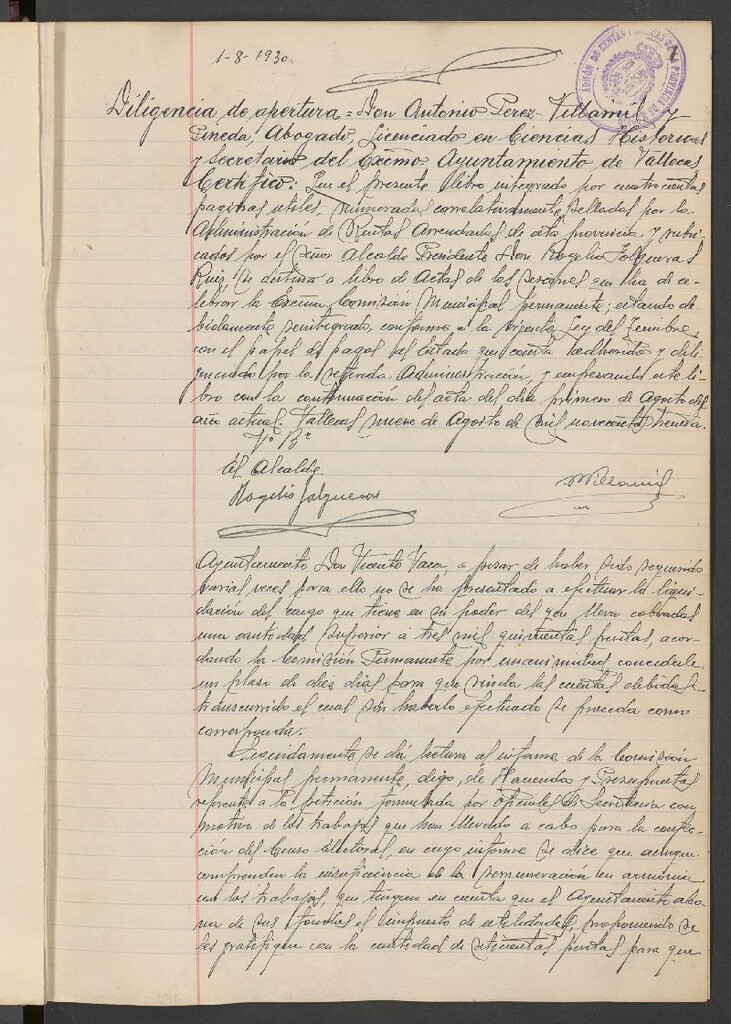 1-8-1930
Diligencia de apertura = Don Antonio Perez-Villamil y
Pineda, Abogado, Licenciado en Ciencias Historicas
y Secretario del Excmo. Ayuntamiento de Vallecas
Certifico: Que el presente libro integrado por cuatrocientas
paginas utiles, numeradas correlativamente, selladas por la
Administración de Rentas Arrendadas de esta provincia y rubri-
cados por el señor Alcalde Presidente Don Rogelio Folgueras
Ruiz, se destina a libro de Actas de las sesiones que ha de ce-
lebrar la Excma Comisión Municipal permanente; estando de-
bidamente reintegrado, conforme a la vigente Ley del Timbre,
con el papel de pagos del Estado que consta adherido y dili-
genciado por la referida Administración, y empezando este li-
bro con la continuación del acta del dia primero de Agosto del
año actual. Vallecas nueve de Agosto de mil novecientos treinta.
Vº Bº
El Alcalde
Rogelio Folgueras
Villamil
Ayuntamiento Don Vicente Vara, a pesar de haber sido requerido
varias veces para ello no se ha presentado a efectuar la liqui-
dación del cargo que tiene en su poder del que lleva cobradas
una cantidad superior a tres mil quinientas pesetas, acor-
dando la Comisión Permanente por unanimidad concederle
un plazo de diez dias para que rinda las cuentas debidas,
transcurrido el cual sin haberlo efectuado se proceda como
corresponda.
Seguidamente se dá lectura al informe de la Comisión
Municipal permanente, digo, de Hacienda y Presupuestos
referente a la petición formulada por oficiales de Secretaria con
motivo de los trabajos que han llevado a cabo para la confec-
ción del Censo electoral, en cuyo informe se dice que aunque
comprenden la insuficiencia de la remuneración en armonia
con los trabajos, que tengan en cuenta que el Ayuntamiento abo-
na de sus fondos el impuesto de utilidades, proponiendo se
les gratifique con la cantidad de setecientas pesetas para que